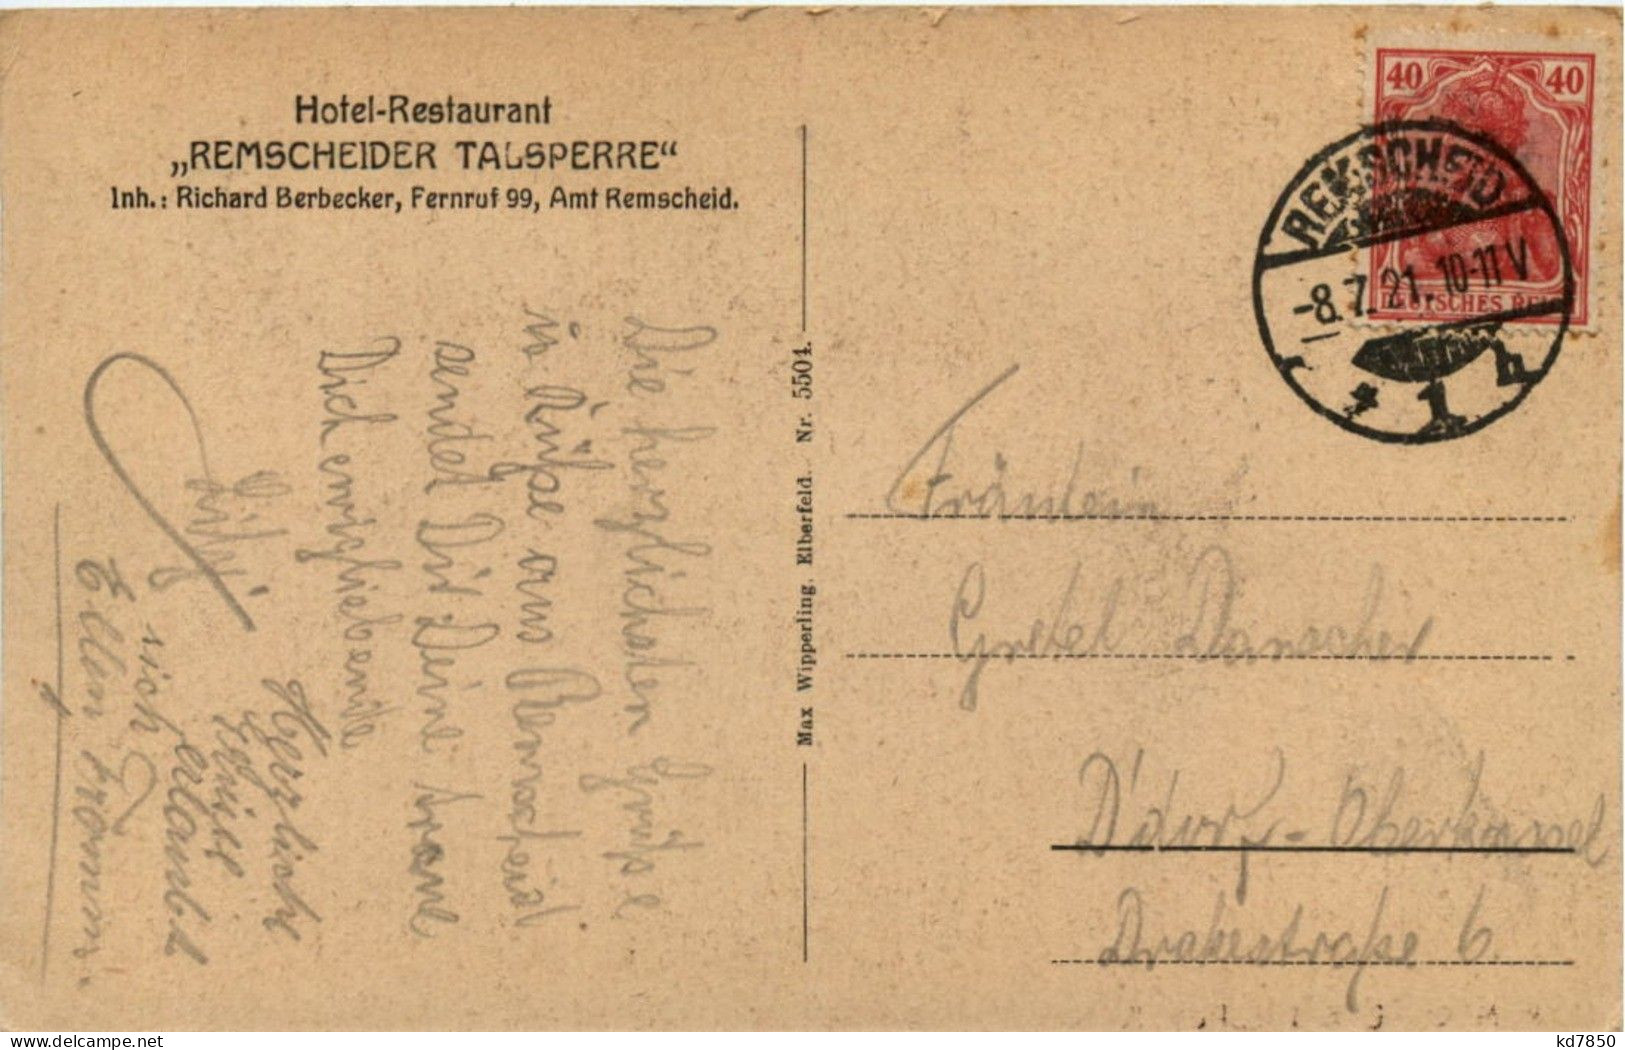 Hotel-Restaurant
„REMSCHEIDER TALSPERRE“
Inh.: Richard Berbecker, Fernruf 99, Amt Remscheid.
40 40
DEUTSCHES REICH
REMSCHEID
-8.7.21. 10-11 V
* 1 h
Max Wipperling. Elberfeld. Nr. 5504.
Die herzlichsten Grüße
u. Küsse aus Remscheid
sendet Dir Deine
Dich ewigliebende
Herzliche
Grüße erlaubt
sich
Ellen
Fräulein
Gretel
D'dorf-Oberkassel
Drakestraße 6.
kd7850